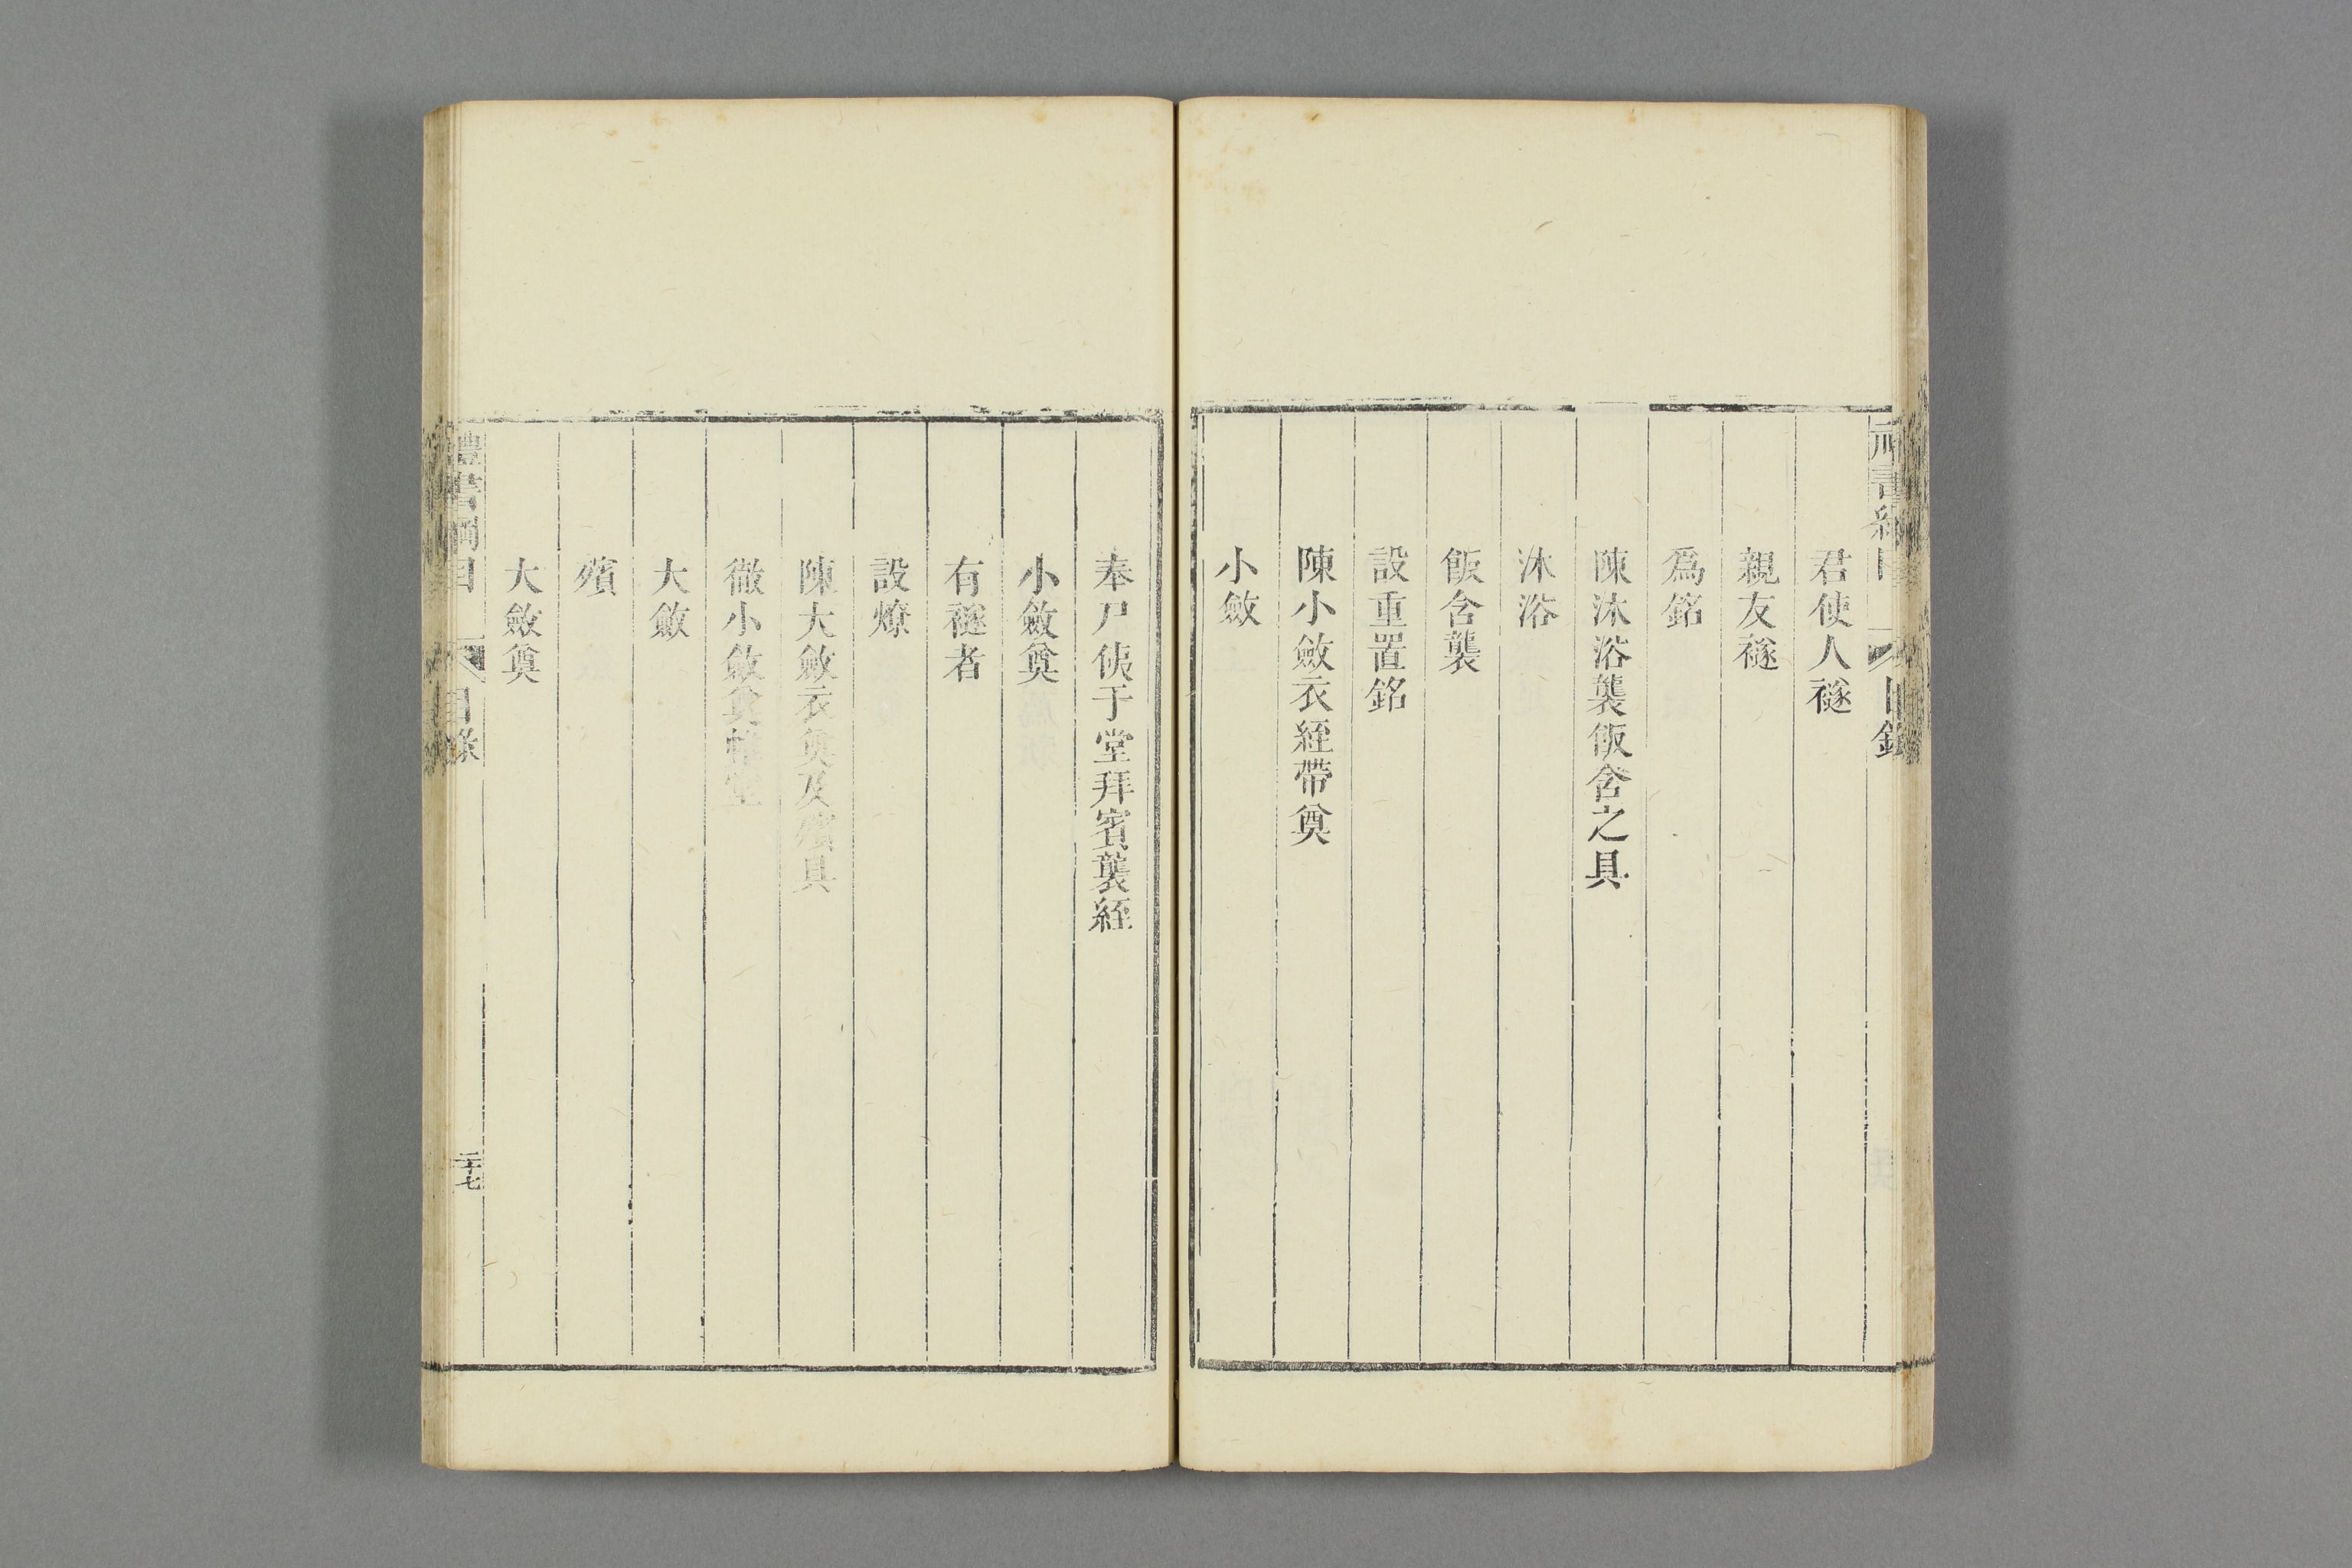 君使人襚
親友襚
爲銘
陳沐浴襲飯含之具
沐浴
飯含襲
設重置銘
陳小斂衣絰帶奠
小斂
奉尸侇于堂拜賓襲絰
小斂奠
有襚者
設燎
陳大斂衣奠及殯具
徹小斂奠帷堂
大斂
殯
大斂奠
禮書綱目
目錄
二十七